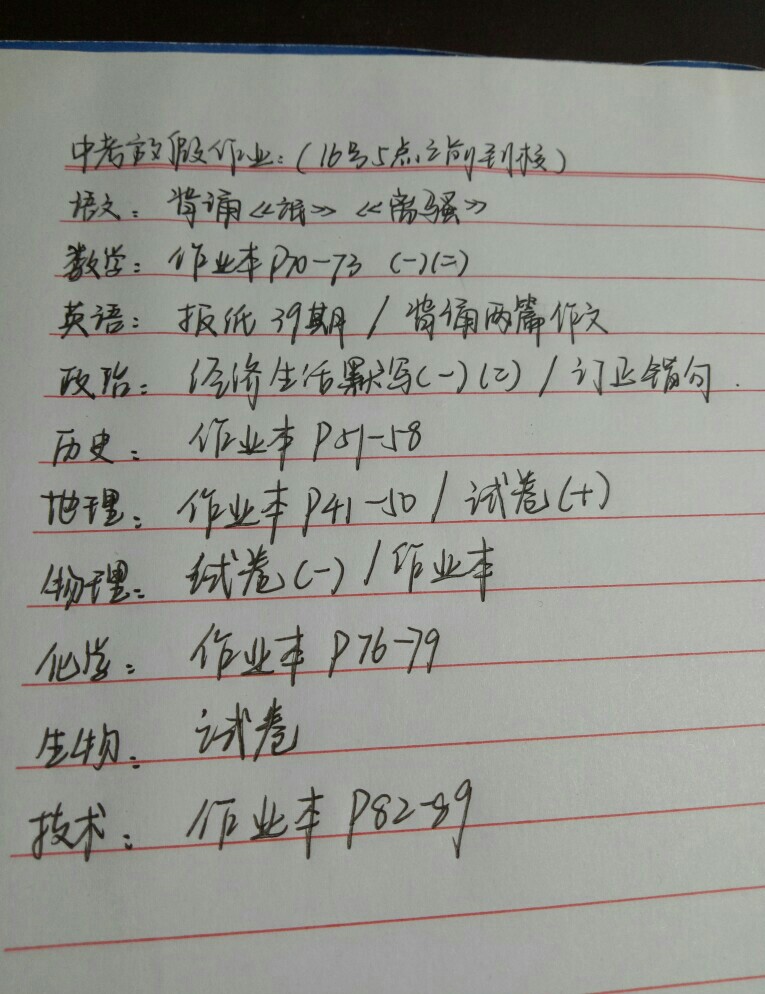 中考放假作业:(16号5点之前到校)
语文: 背诵《氓》《离骚》
数学: 作业本P70-73 (一)(二)
英语: 报纸39期 / 背诵两篇作文
政治: 经济生活默写(一)(二) / 订正错句.
历史: 作业本P51-58
地理: 作业本P41-50 / 试卷(十)
物理: 试卷(一) / 作业本
化学: 作业本P76-79
生物: 试卷
技术: 作业本P82-89